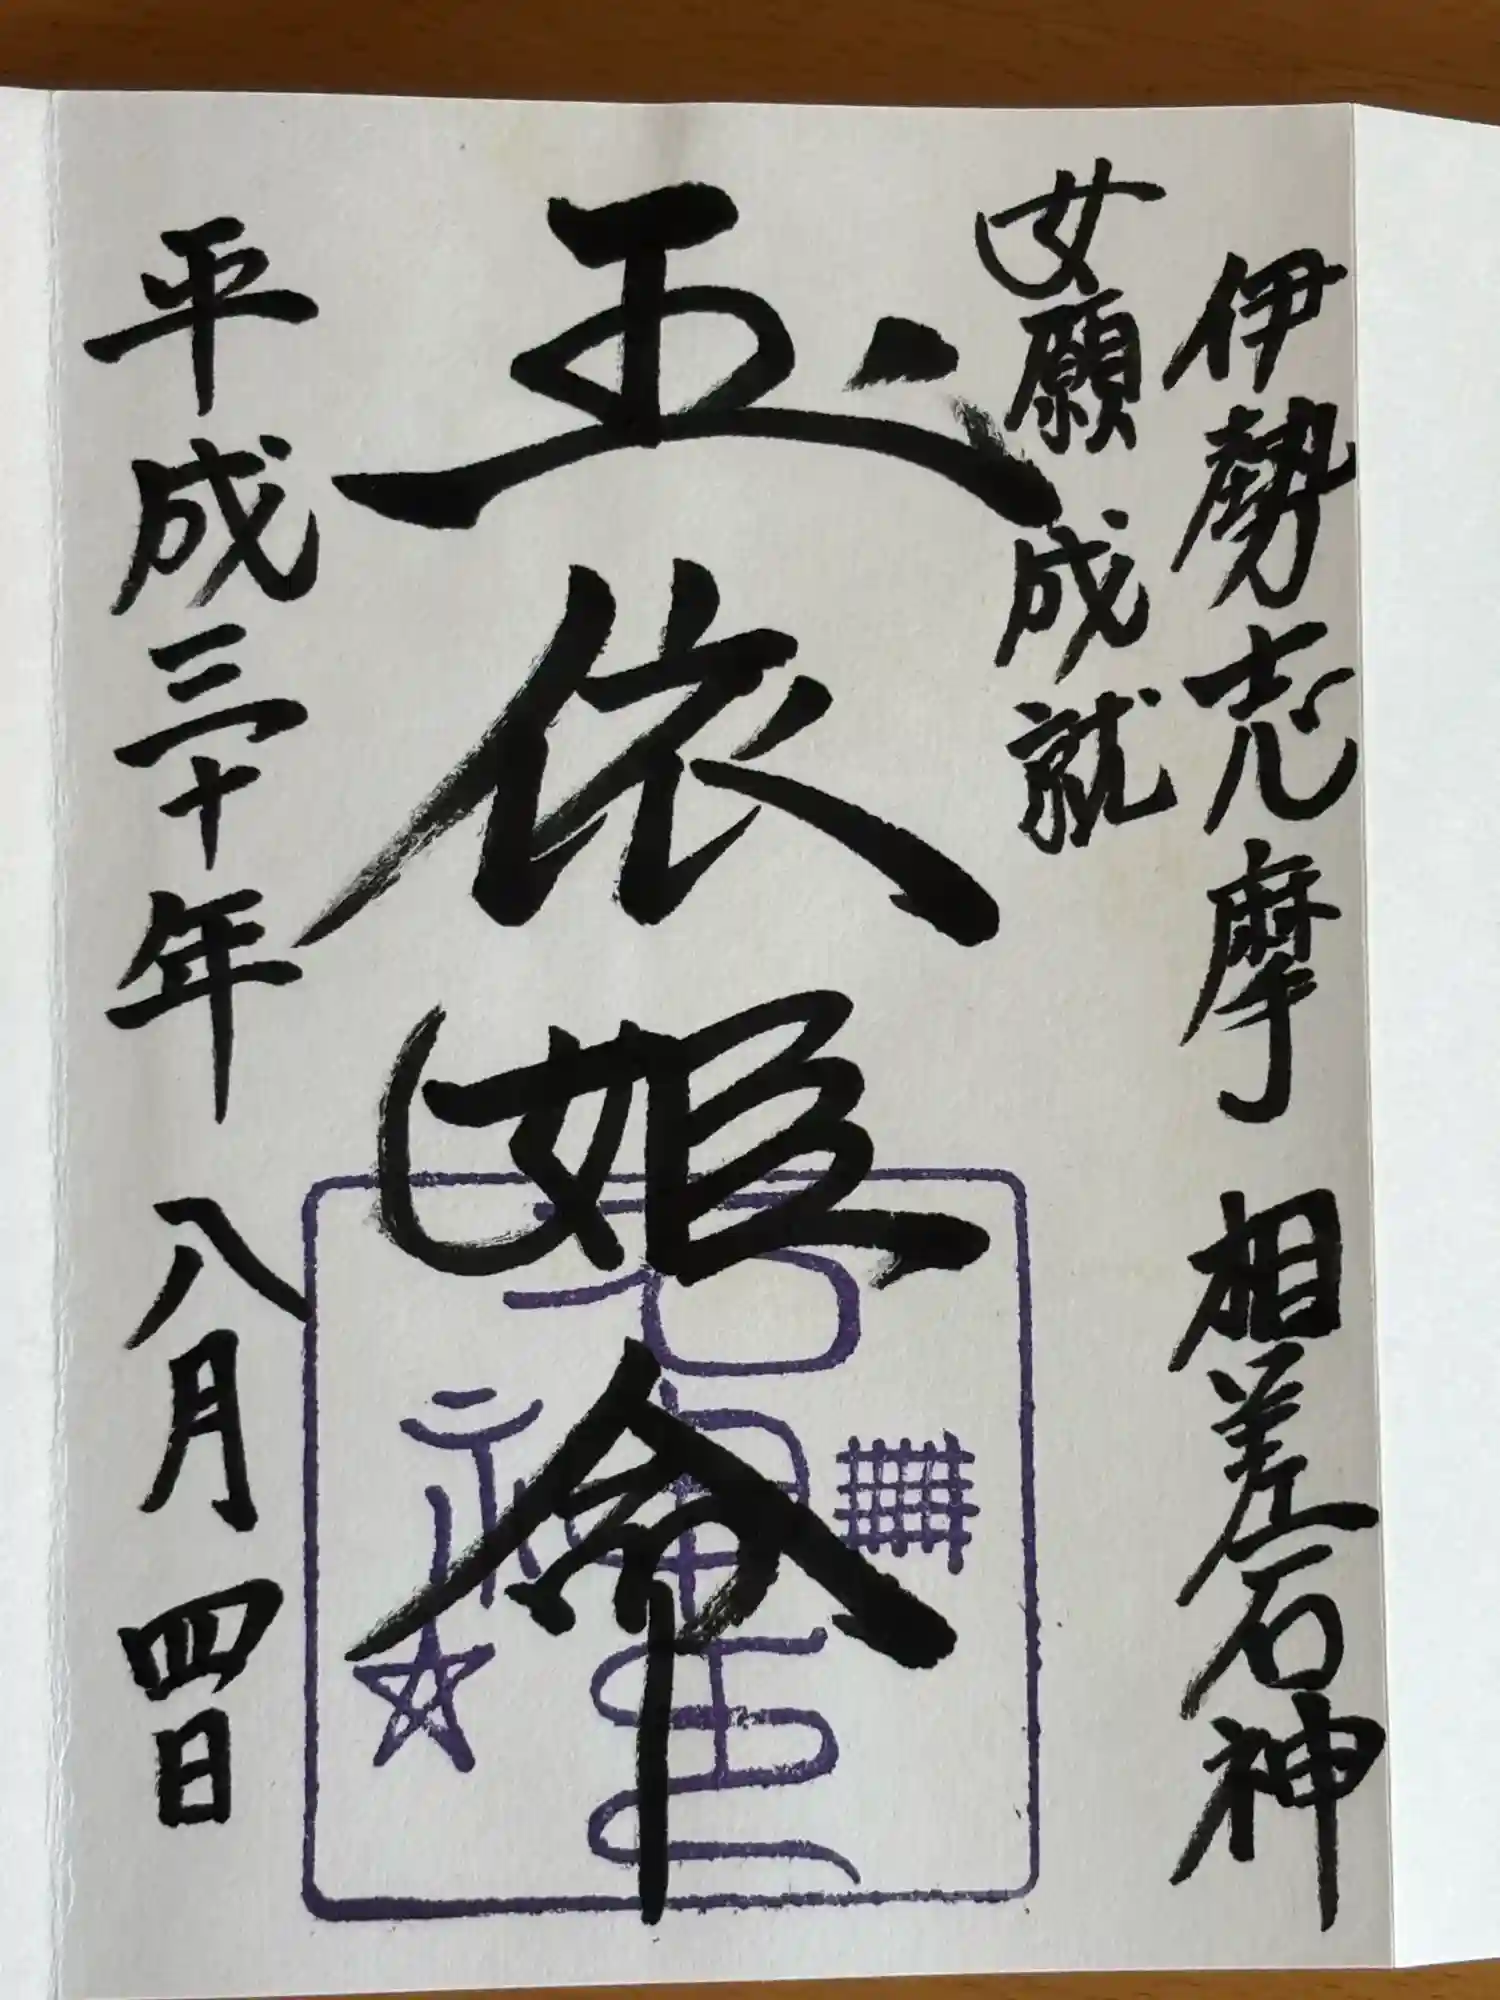 伊勢志摩 相差石神
女願成就
玉依姫命
平成三十年 八月 四日
石神